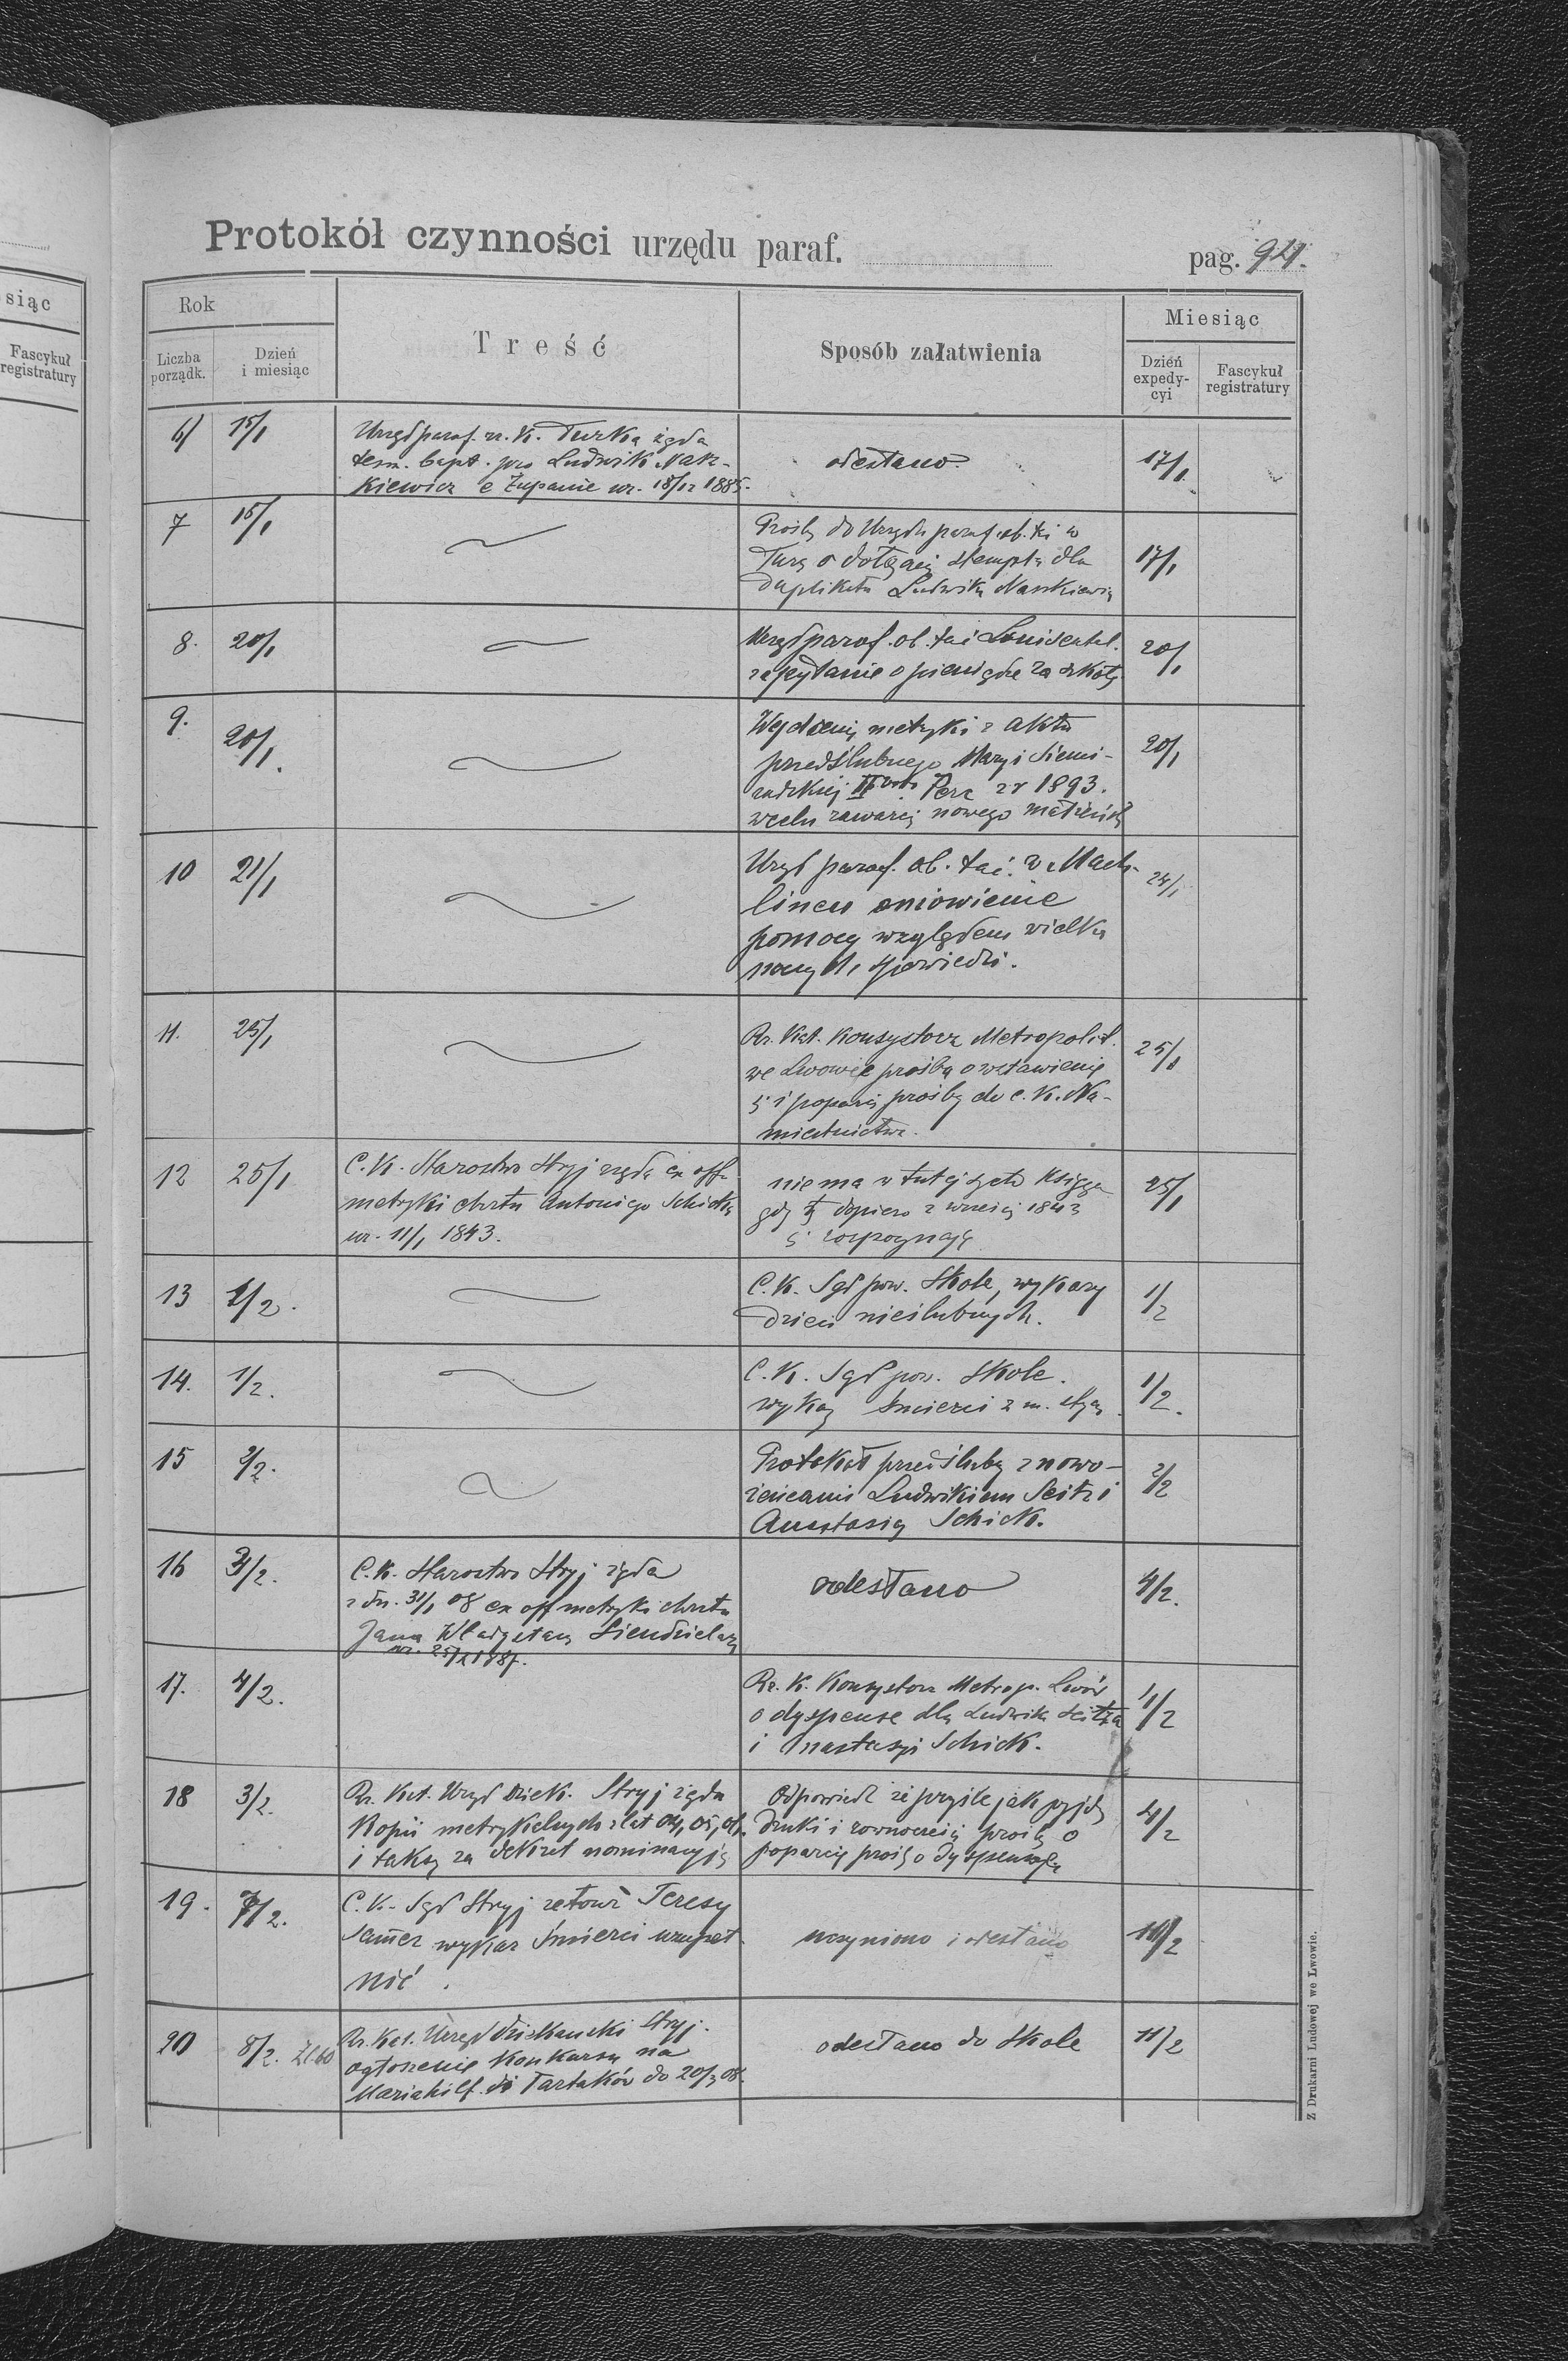 Protokół czynności urzędu paraf.
pag. 94.
siąc
Fascykuł
registratury
Rok
Liczba
porządk.
Dzień
i miesiąc
Treść
Sposób załatwienia
Miesiąc
Dzień
expedy-
cyi
Fascykuł
registratury
6/ 15/1
Urząd paraf. rz. k. Turka żąda
tesm. bapt. pro Ludwik Nar-
kiewicz e Żupanie ur. 18/12 1885.
odesłano.
17/1
7 15/1
Prośba do Urzędu paraf. ob. łać w
o dołączenie stempla dla
duplikatu Ludwika
17/1
8. 20/1
Urząd paraf. ob. łać
zapytanie o pieniądze za szkołę
20/1
9. 20/1
Wydanie metryki z aktu
przedślubnego Maryi Siemi-
radzkiej II voto Perz z r 1893.
w celu zawarcia nowego
20/1
10 21/1
Urząd paraf. ob. łać. w Mach-
lincu omówienie
pomocy względem wielka
nocnych spowiedzi.
24/1
11. 25/1
Rz. Kat. Konsystorz Metropolit.
we Lwowie prośba o wstawienie
i poparcie prośby do c. k. Na-
miestnictwa.
25/1
12 25/1
C. K. Starostwo Stryj żąda ex offo
metryki chrztu Antoniego Schicka
ur. 11/1 1843.
nie ma w tutejszych księgach
gdyż dopiero z 1843
rozpoczynają
25/1
13 1/2.
C. K. Sąd pow. Skole, wykazy
dzieci nieślubnych.
1/2
14. 1/2.
C. K. Sąd pow. Skole.
wykaz śmierci z m.
1/2.
15 2/2.
Protokół przedślubny z nowo-
żeńcami Ludwikiem Seitz i
Anastasią Schick.
2/2
16 3/2.
C. K. Starostwo Stryj żąda
z dn. 31/1 08 ex off metryki chrztu
Jana
odesłano
4/2.
17. 4/2.
Rz. K. Konsystorz Metrop. Lwów
o dyspense dla Ludwika Seitza
i Anastazyi Schick.
18 3/2.
Rz. Kat. Urząd Dziek. Stryj żąda
Kopii metrykalnych z lat 04, 05, 06.
i taksy za dekret nominacyj
Odpowiedź że przyśle jak przyjdą
druki i równocześnie prośba o
poparcie prośby o dyspensę
4/2
19. 7/2.
C. K. Sąd Stryj Teresy
wykaz śmierci uzupeł
nić.
uczyniono i odesłano
20 8/2.
Rz. Kat. Urząd dziekański Stryj.
ogłoszenie konkursu na
Mariahilf. do Tartaków do 20/3 08.
odesłano do Skole
11/2
Z Drukarni Ludowej we Lwowie.